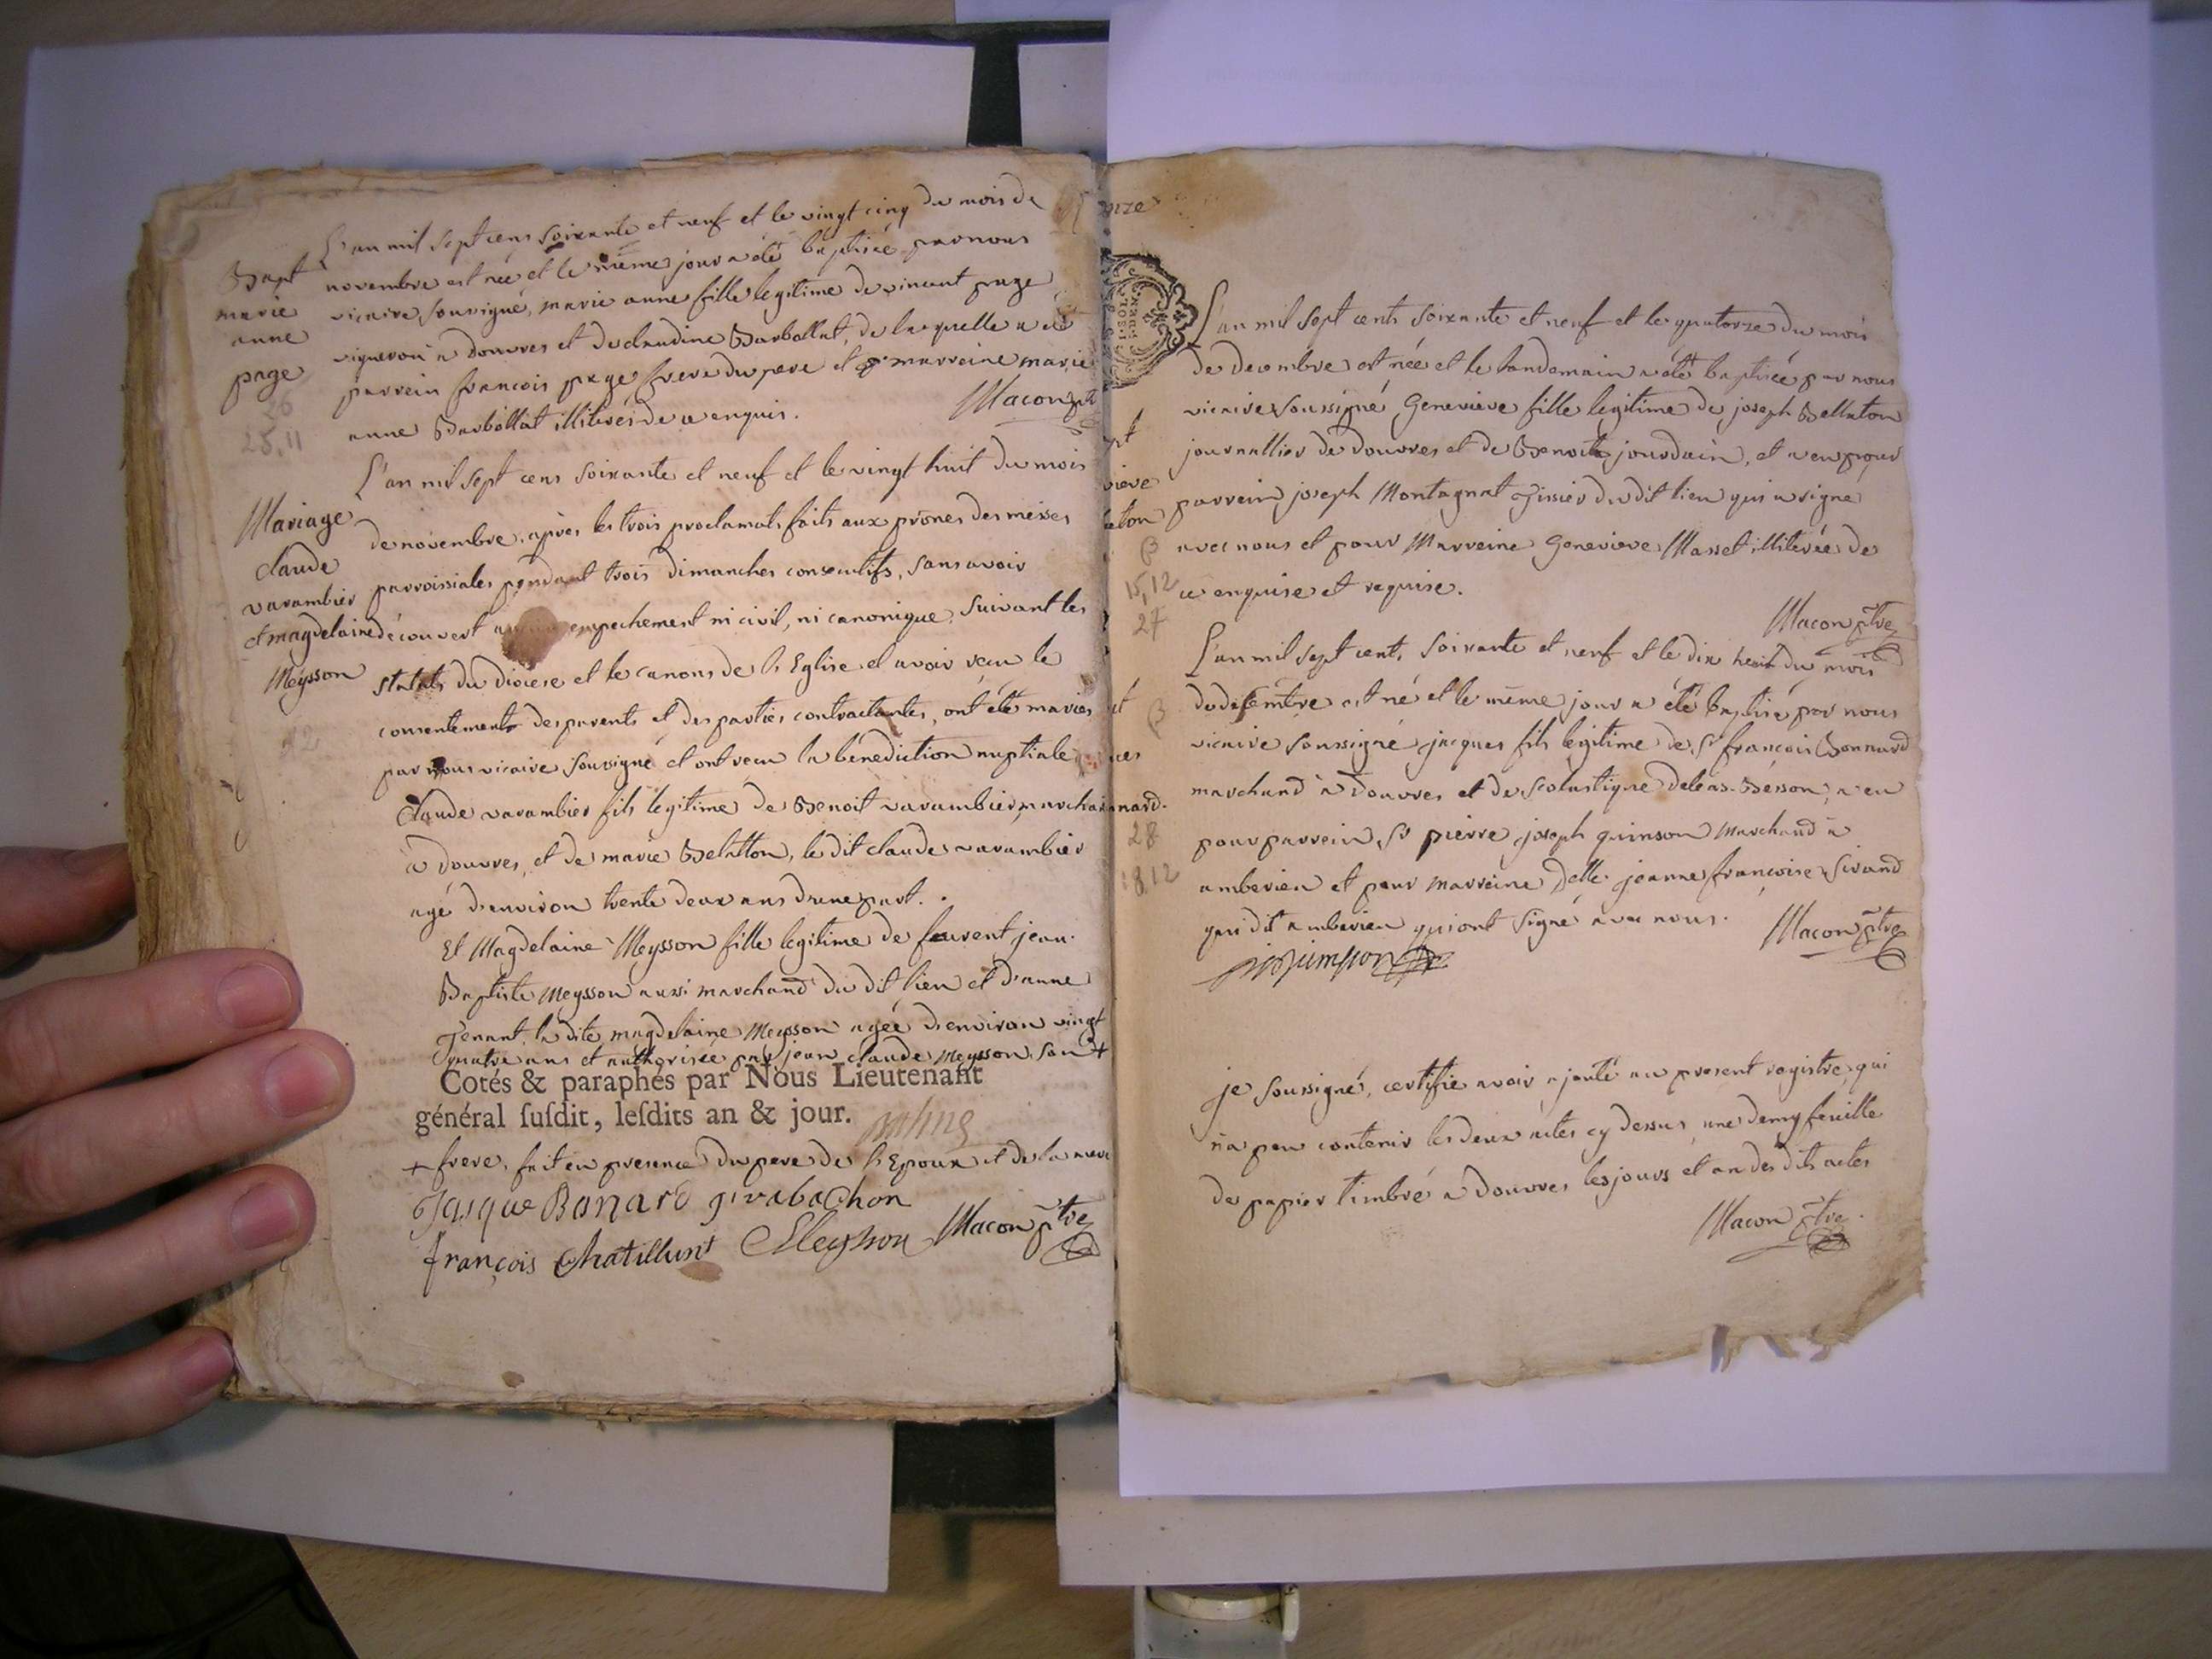 L'an mil sept cens soixante et neuf et le vingt cinq du mois de
Bapt
marie
anne
page
26
25,11
novembre est née et le même jour a été baptisée par nous
vicaire soussigné, marie anne fille legitime de vincent page
vigneron a douvres et de claudine Barbollat, de laquelle a été
parrein françois page frere du pere et marreine marie
anne Barbollat illiterés de ce enquis.
Macon ptre
L'an mil sept cens soixante et neuf et le vingt huit du mois
Mariage
claude
varambier
et magdelaine
Meysson
12
de novembre, après les trois proclamats faits aux prônes des messes
parroissiales pendant trois dimanches consecutifs, sans avoir
découvert aucun empechement ni civil, ni canonique, suivant les
statuts du diocese et les canons de l'Eglise et avoir recu le
consentement des parents et des parties contractantes, ont été mariés
par nous vicaire soussigné et ont recu la bénediction nuptiale
Claude varambier fils legitime de Benoit varambier, marchand
à douvres, et de marie Belatton, le dit claude varambier
agé d'environ trente deux ans d'une part.
Et Magdelaine Meysson fille legitime de jean
Baptiste Meysson aussi marchand du dit lieu et d'anne
Tenant, la dite magdelaine Meysson agée d'environ vingt
quatre ans et authorisée par jean claude Meysson, son +
Cotés & paraphés par Nous Lieutenant
général ſuſdit, leſdits an & jour.
+ frere, fait en presence du pere de l'Epoux et de la mere
Jasque Bonard girabachon
françois Chatillunt Meysson Macon ptre
L'an mil sept cents soixante et neuf et le quatorze du mois
de decembre est née et le landemain a été baptisée par nous
vicaire soussigné Genevieve fille legitime de joseph Bellaton
journallier de douvres et de Benoite jourdain, et a eu pour
parrein joseph Montagnat Tissier du dit lieu qui a signé
avec nous et pour Marreine Genevieve Masset illiterée de
ce enquise et requise.
Macon ptre
15,12
27
L'an mil sept cent, soixante et neuf et le dix huit du mois
de décembre est né et le même jour a été baptisé par nous
vicaire soussigné jacques fils legitime de Sr françois Bonnard
marchand à Douvres et de Scolastique deléas-Besson, a eu
pour parrein, Sr pierre joseph quinson Marchand a
amberieu et pour marreine Delle. jeanne françoise Sirand
qui dit amberieu qui ont signé avec nous.
Macon ptre
28
18,12
je soussigné, certifie avoir ajouté au present registre, qui
n'a peu contenir les deux actes cy dessus, une demy feuille
de papier timbré a Douvres les jours et an des dits actes
Macon ptre.